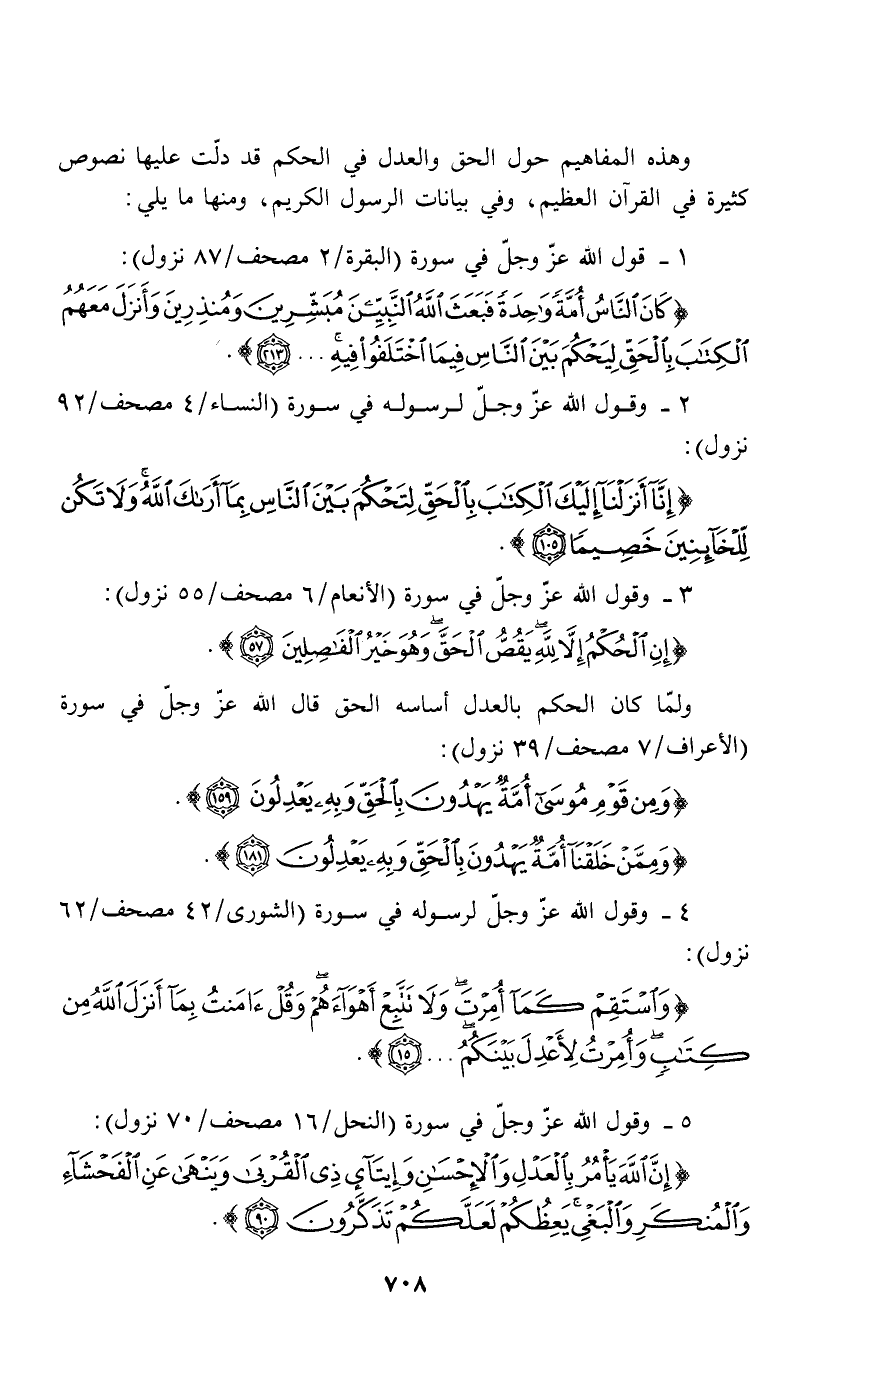 وهذه المفاهيم حول الحق والعدل في الحكم قد دلّت عليها نصوص
كثيرة في القرآن العظيم، وفي بيانات الرسول الكريم، ومنها ما يلي:
١ ـ قول الله عزّ وجلّ في سورة (البقرة/٢ مصحف/٨٧ نزول):
﴿كَانَ ٱلنَّاسُ أُمَّةً وَٰحِدَةً فَبَعَثَ ٱللَّهُ ٱلنَّبِيِّـۧنَ مُبَشِّرِينَ وَمُنذِرِينَ وَأَنزَلَ مَعَهُمُ
ٱلْكِتَٰبَ بِٱلْحَقِّ لِيَحْكُمَ بَيْنَ ٱلنَّاسِ فِيمَا ٱخْتَلَفُوا۟ فِيهِ ۚ ... ٢١٣﴾.
٢ ـ وقـول الله عزّ وجـلّ لـرسولـه في سـورة (النسـاء/٤ مصحف/٩٢
نزول):
﴿إِنَّآ أَنزَلْنَآ إِلَيْكَ ٱلْكِتَٰبَ بِٱلْحَقِّ لِتَحْكُمَ بَيْنَ ٱلنَّاسِ بِمَآ أَرَىٰكَ ٱللَّهُ ۚ وَلَا تَكُن
لِّلْخَآئِنِينَ خَصِيمًا ١٠٥﴾.
٣ ـ وقول الله عزّ وجلّ في سورة (الأنعام/٦ مصحف/٥٥ نزول):
﴿إِنِ ٱلْحُكْمُ إِلَّا لِلَّهِ ۖ يَقُصُّ ٱلْحَقَّ ۖ وَهُوَ خَيْرُ ٱلْفَٰصِلِينَ ٥٧﴾.
ولمّا كان الحكم بالعدل أساسه الحق قال الله عزّ وجلّ في سورة
(الأعراف/٧ مصحف/٣٩ نزول):
﴿وَمِن قَوْمِ مُوسَىٰٓ أُمَّةٌ يَهْدُونَ بِٱلْحَقِّ وَبِهِۦ يَعْدِلُونَ ١٥٩﴾.
﴿وَمِمَّنْ خَلَقْنَآ أُمَّةٌ يَهْدُونَ بِٱلْحَقِّ وَبِهِۦ يَعْدِلُونَ ١٨١﴾.
٤ ـ وقول الله عزّ وجلّ لرسـوله في سـورة (الشورى/٤٢ مصحف/٦٢
نزول):
﴿وَٱسْتَقِمْ كَمَآ أُمِرْتَ ۖ وَلَا تَتَّبِعْ أَهْوَآءَهُمْ ۖ وَقُلْ ءَامَنتُ بِمَآ أَنزَلَ ٱللَّهُ مِن
كِتَٰبٍ ۖ وَأُمِرْتُ لِأَعْدِلَ بَيْنَكُمُ ۖ ... ١٥﴾.
٥ ـ وقول الله عزّ وجلّ في سورة (النحل/١٦ مصحف/٧٠ نزول):
﴿إِنَّ ٱللَّهَ يَأْمُرُ بِٱلْعَدْلِ وَٱلْإِحْسَٰنِ وَإِيتَآئِ ذِى ٱلْقُرْبَىٰ وَيَنْهَىٰ عَنِ ٱلْفَحْشَآءِ
وَٱلْمُنكَرِ وَٱلْبَغْىِ ۚ يَعِظُكُمْ لَعَلَّكُمْ تَذَكَّرُونَ ٩٠﴾.
٧٠٨